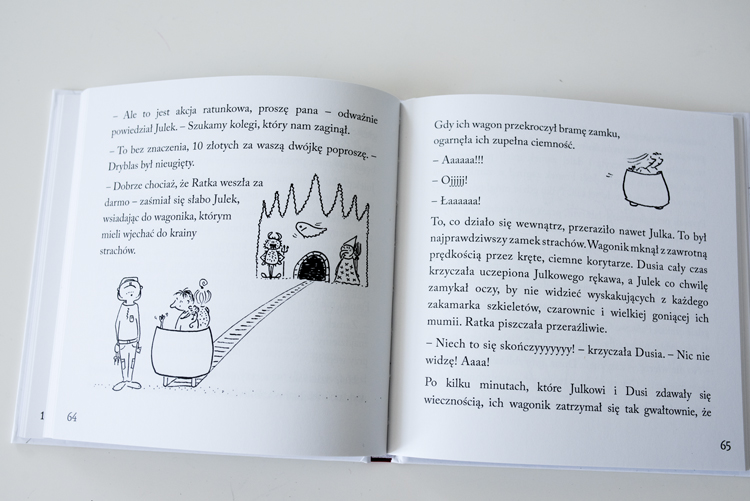 – Ale to jest akcja ratunkowa, proszę pana – odważnie
powiedział Julek. – Szukamy kolegi, który nam zaginął.
– To bez znaczenia, 10 złotych za waszą dwójkę poproszę. –
Dryblas był nieugięty.
– Dobrze chociaż, że Ratka weszła za
darmo – zaśmiał się słabo Julek,
wsiadając do wagonika, którym
mieli wjechać do krainy
strachów.
1
64
Gdy ich wagon przekroczył bramę zamku,
ogarnęła ich zupełna ciemność.
– Aaaaaa!!!
– Ojjjjj!
– Łaaaaaa!
To, co działo się wewnątrz, przeraziło nawet Julka. To był
najprawdziwszy zamek strachów. Wagonik mknął z zawrotną
prędkością przez kręte, ciemne korytarze. Dusia cały czas
krzyczała uczepiona Julkowego rękawa, a Julek co chwilę
zamykał oczy, by nie widzieć wyskakujących z każdego
zakamarka szkieletów, czarownic i wielkiej goniącej ich
mumii. Ratka piszczała przeraźliwie.
– Niech to się skończyyyyyyy! – krzyczała Dusia. – Nic nie
widzę! Aaaa!
Po kilku minutach, które Julkowi i Dusi zdawały się
wiecznością, ich wagonik zatrzymał się tak gwałtownie, że
65